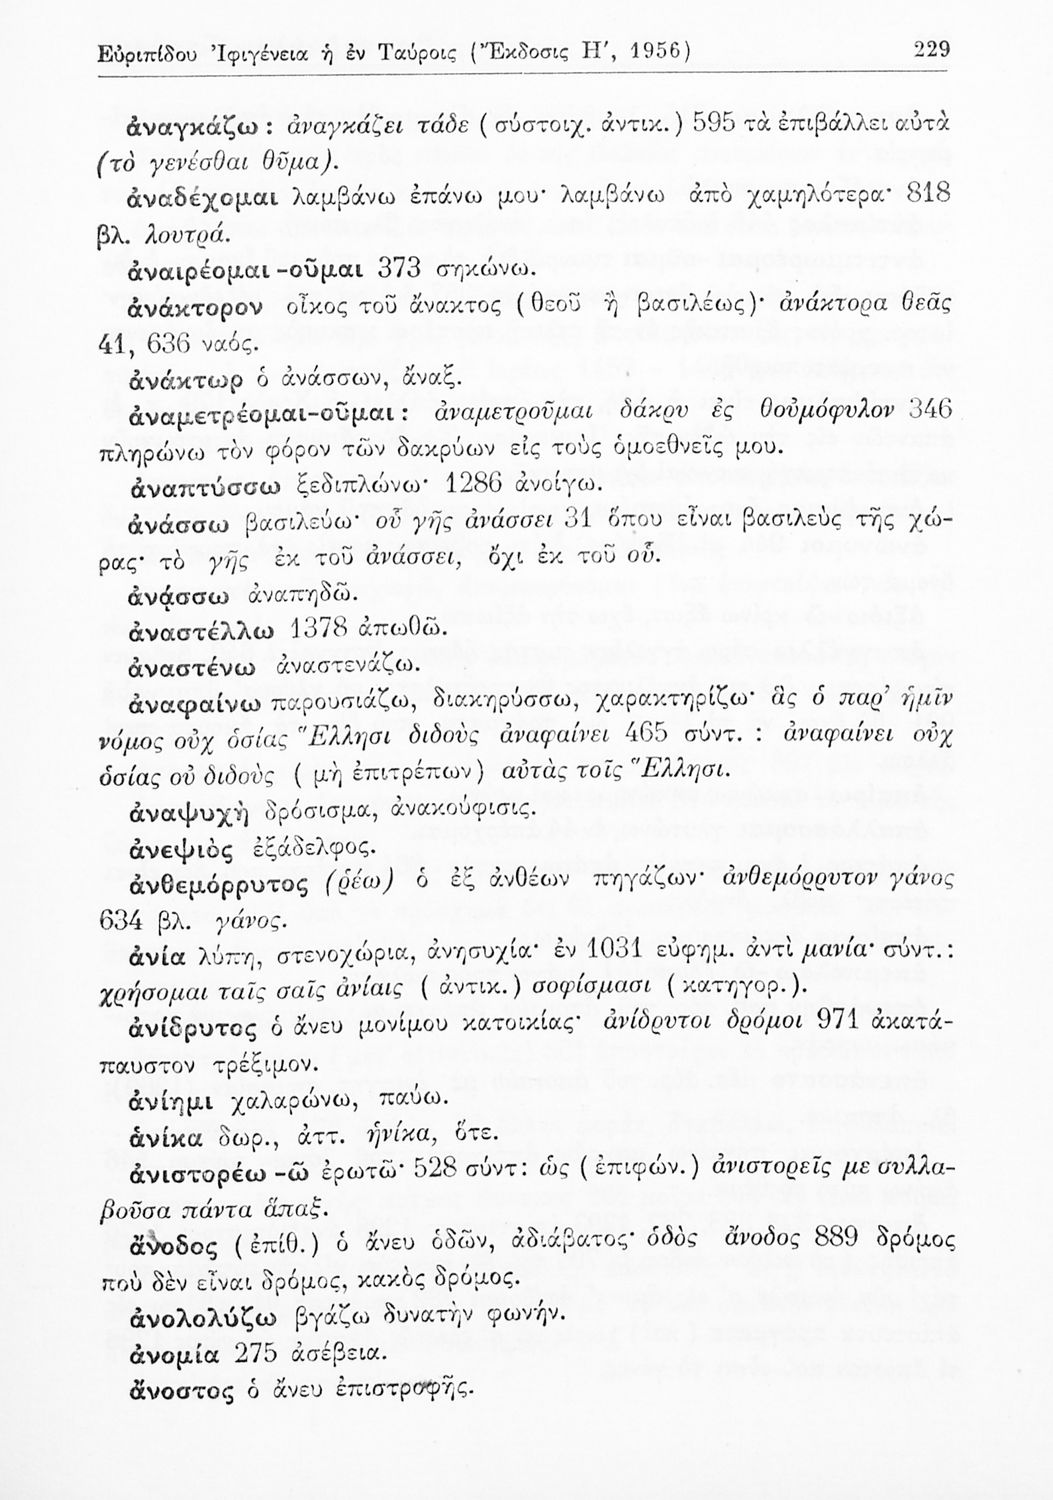 Εὐριπίδου Ἰφιγένεια ἡ ἐν Ταύροις (Ἔκδοσις Η', 1956) 229
ἀναγκάζω : ἀναγκάζει τάδε ( σύστοιχ. ἀντικ. ) 595 τὰ ἐπιβάλλει αὐτὰ
(τὸ γενέσθαι θῦμα).
ἀναδέχομαι λαμβάνω ἐπάνω μου· λαμβάνω ἀπὸ χαμηλότερα· 818
βλ. λουτρά.
ἀναιρέομαι -οῦμαι 373 σηκώνω.
ἀνάκτορον οἶκος τοῦ ἄνακτος (θεοῦ ἢ βασιλέως)· ἀνάκτορα θεᾶς
41, 636 ναός.
ἀνάκτωρ ὁ ἀνάσσων, ἄναξ.
ἀναμετρέομαι-οῦμαι : ἀναμετροῦμαι δάκρυ ἐς θοὐμόφυλον 346
πληρώνω τὸν φόρον τῶν δακρύων εἰς τοὺς ὁμοεθνεῖς μου.
ἀναπτύσσω ξεδιπλώνω· 1286 ἀνοίγω.
ἀνάσσω βασιλεύω· οὗ γῆς ἀνάσσει 31 ὅπου εἶναι βασιλεὺς τῆς χώ-
ρας· τὸ γῆς ἐκ τοῦ ἀνάσσει, ὄχι ἐκ τοῦ οὗ.
ἀνᾴσσω ἀναπηδῶ.
ἀναστέλλω 1378 ἀπωθῶ.
ἀναστένω ἀναστενάζω.
ἀναφαίνω παρουσιάζω, διακηρύσσω, χαρακτηρίζω· ἃς ὁ παρ' ἡμῖν
νόμος οὐχ ὁσίας Ἕλλησι διδοὺς ἀναφαίνει 465 σύντ. : ἀναφαίνει οὐχ
ὁσίας οὐ διδοὺς ( μὴ ἐπιτρέπων) αὐτὰς τοῖς Ἕλλησι.
ἀναψυχὴ δρόσισμα, ἀνακούφισις.
ἀνεψιὸς ἐξάδελφος.
ἀνθεμόρρυτος (ῥέω) ὁ ἐξ ἀνθέων πηγάζων· ἀνθεμόρρυτον γάνος
634 βλ. γάνος.
ἀνία λύπη, στενοχώρια, ἀνησυχία· ἐν 1031 εὐφημ. ἀντὶ μανία· σύντ. :
χρήσομαι ταῖς σαῖς ἀνίαις ( ἀντικ. ) σοφίσμασι ( κατηγορ. ).
ἀνίδρυτος ὁ ἄνευ μονίμου κατοικίας· ἀνίδρυτοι δρόμοι 971 ἀκατά-
παυστον τρέξιμον.
ἀνίημι χαλαρώνω, παύω.
ἁνίκα δωρ., ἀττ. ἡνίκα, ὅτε.
ἀνιστορέω -ῶ ἐρωτῶ· 528 σύντ: ὡς ( ἐπιφών. ) ἀνιστορεῖς με συλλα-
βοῦσα πάντα ἅπαξ.
ἄνοδος ( ἐπίθ. ) ὁ ἄνευ ὁδῶν, ἀδιάβατος· ὁδὸς ἄνοδος 889 δρόμος
ποὺ δὲν εἶναι δρόμος, κακὸς δρόμος.
ἀνολολύζω βγάζω δυνατὴν φωνήν.
ἀνομία 275 ἀσέβεια.
ἄνοστος ὁ ἄνευ ἐπιστροφῆς.